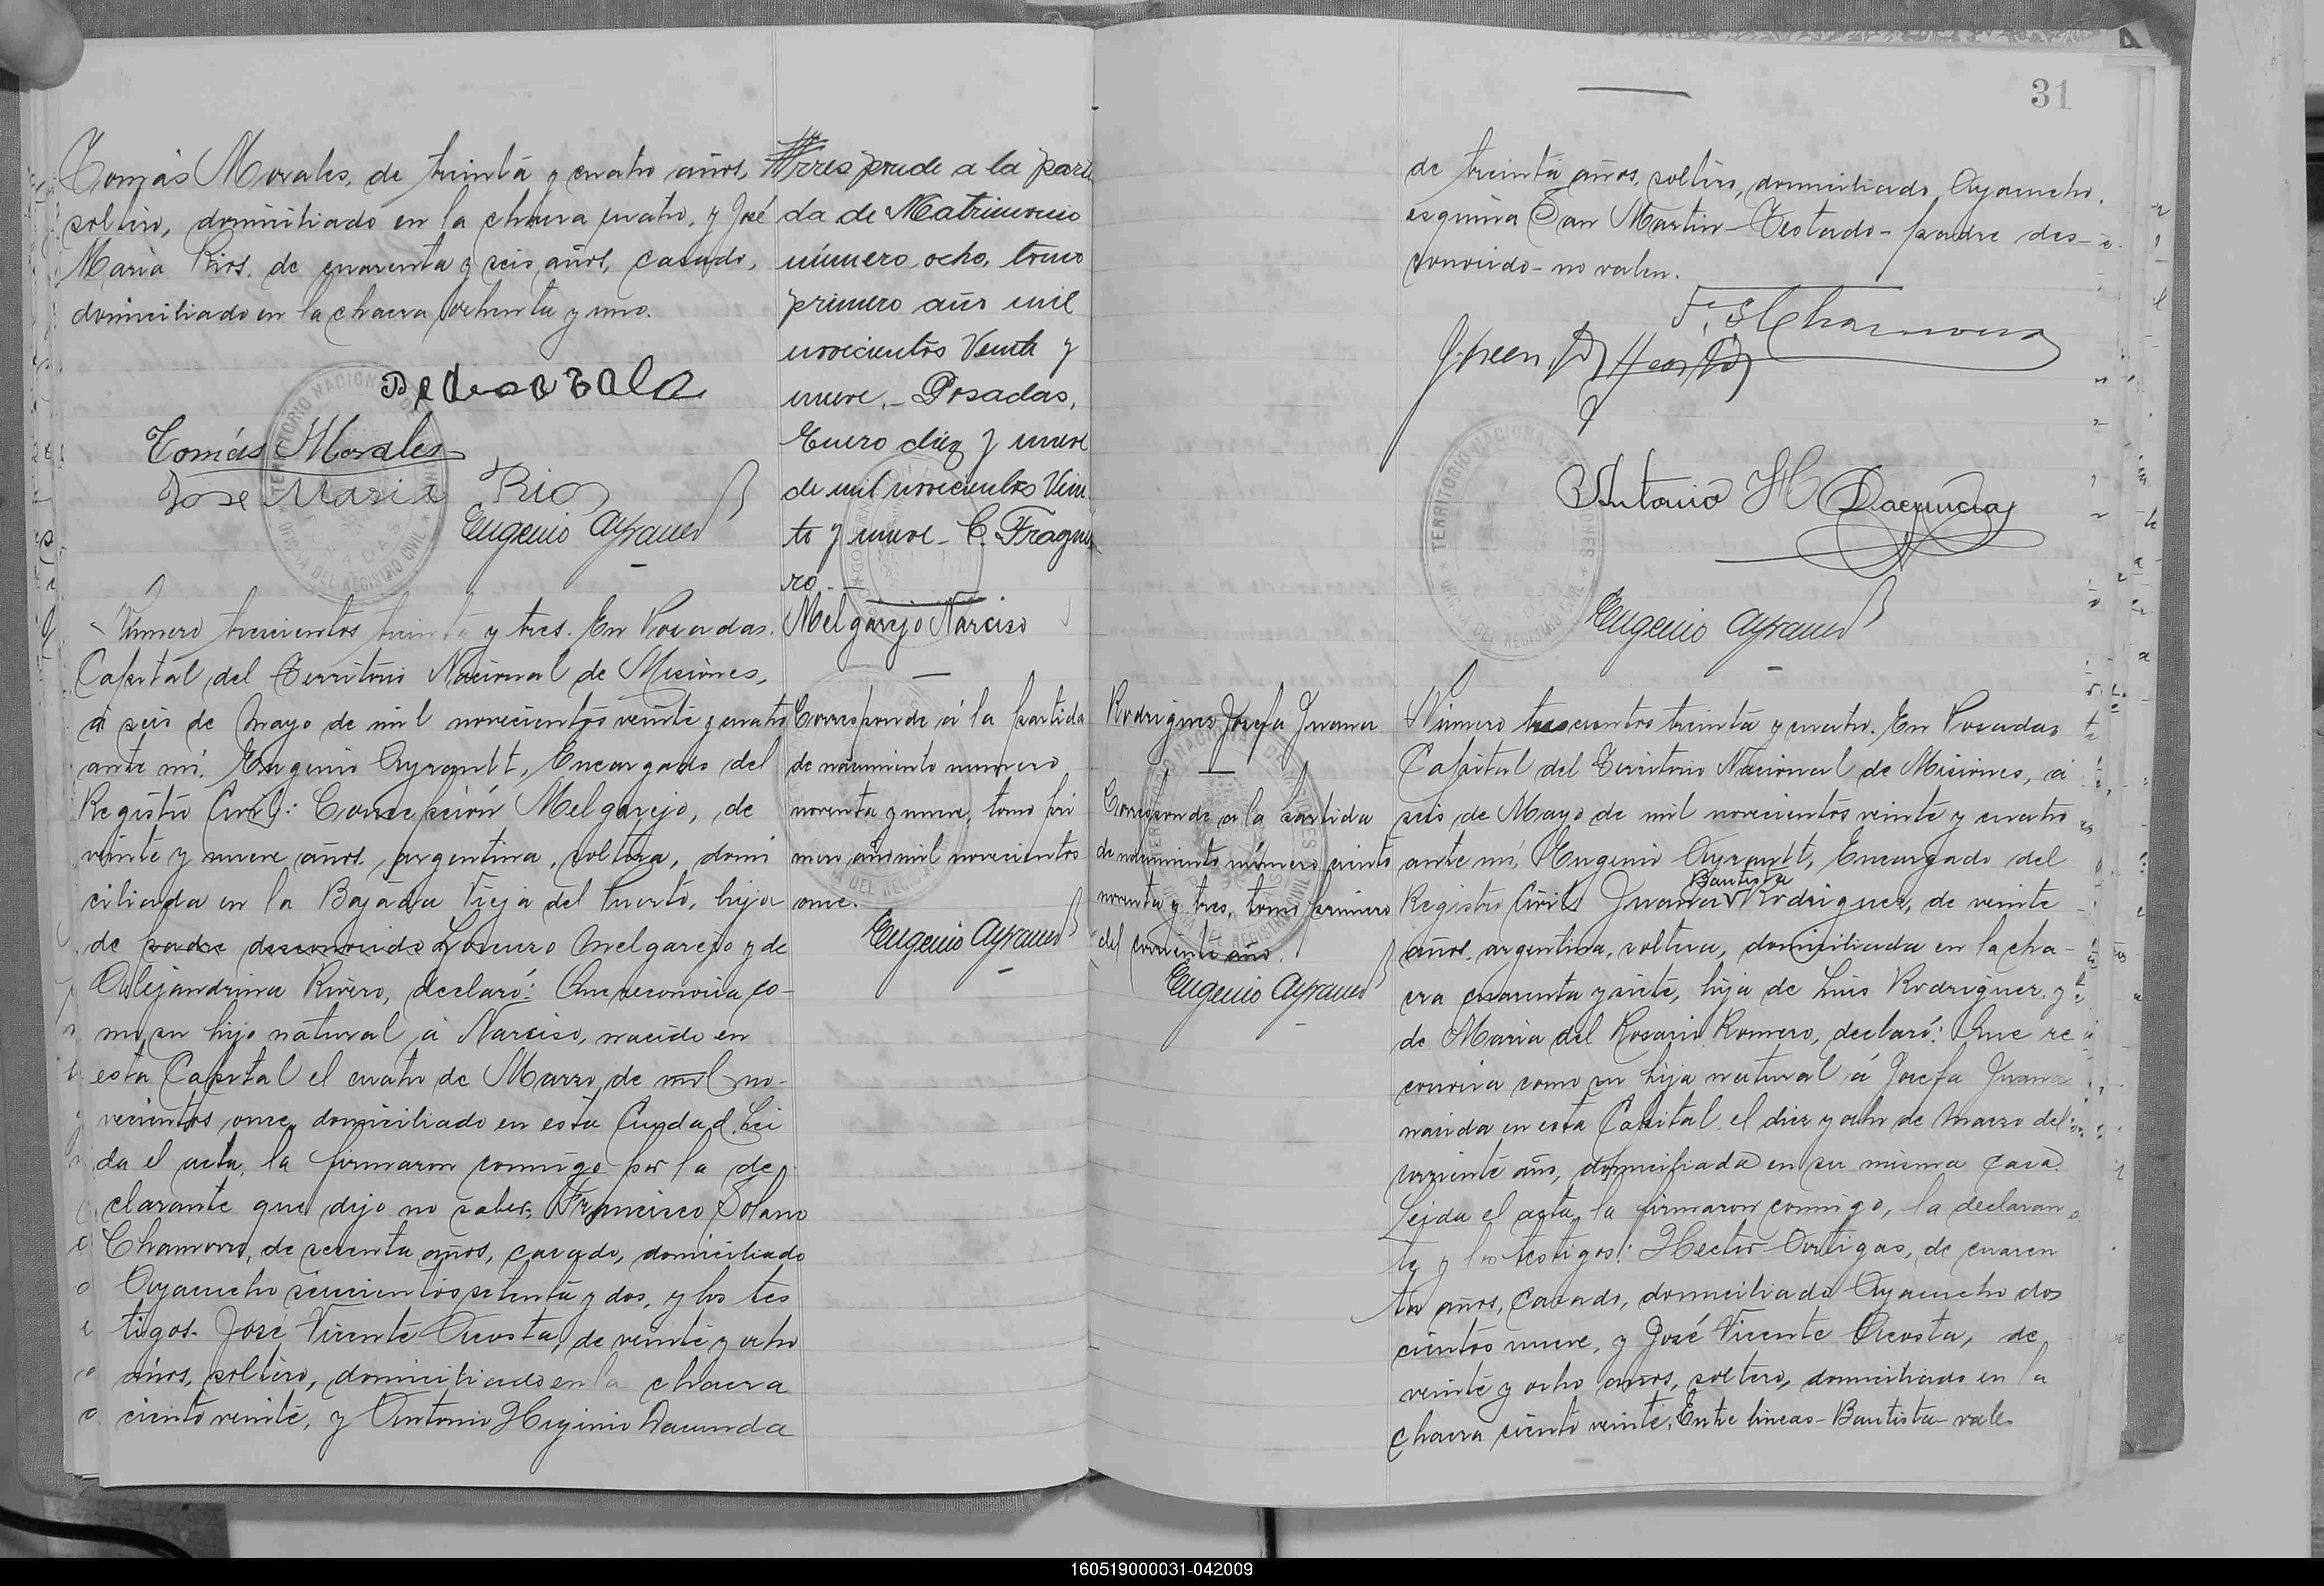 Tomás Morales, de treinta y cuatro años,
soltero, domiciliado en la chacra cuatro, y José
María Rios, de cuarenta y seis años, casado,
domiciliado en la chacra ochenta y uno.
Tomás Morales
Jose Maria Rios
Eugenio Ayrault
rresponde a la parti
da de Matrimonio
número ocho, tomo
primero año mil
novecientos Veinte y
nueve.- Posadas,
Enero diez y nueve
de mil novecientos Vein
te y nueve - C. Fragu
ro.
Número trescientos treinta y tres. En Posadas,
Capital del Territorio Nacional de Misiones,
á seis de Mayo de mil novecientos veinte y cuatro
ante mí, Eugenio Ayrault, Encargado del
Registro Civil: Concepción Melgarejo, de
veinte y nueve años, argentina, soltera, domi
ciliada en la Bajada Vieja del Puerto, hija
de padre desconocido Lorenzo Melgarejo y de
Alejandrina Rivero, declaró: Que reconocia co-
mo su hijo natural á Narciso, nacido en
esta Capital el cuatro de Marzo de mil no-
vecientos once, domiciliado en esta Ciudad. Lei
da el acta, la firmaron conmigo por la de
clarante que dijo no saber, Francisco Solano
Chamorro, de sesenta años, casado, domiciliado
Ayacucho seiscientos setenta y dos, y los tes
tigos. José Vicente Acosta, de veinte y ocho
años, soltero, domiciliado en la chacra
ciento veinte, y Antonio Higinio Dacunda
Melgarejo Narciso
Corresponde á la partida
de nacimiento numero
noventa y nueve, tomo pri
mero año mil novecientos
once.
Eugenio Ayrault
31
de treinta años, soltero, domiciliado Ayacucho
esquina San Martin - Testado - padre des-
conocido - no valen.
F. S. Chamorro
Antonio H Dacunda
Eugenio Ayrault
Rodriguez Josefa Juana
Corresponde a la partida
de nacimiento número ciento
noventa y tres, tomo primero
del corriente año.
Eugenio Ayrault
Número trescientos treinta y cuatro. En Posadas
Capital del Territorio Nacional de Misiones, á
seis de Mayo de mil novecientos veinte y cuatro
ante mí, Eugenio Ayrault, Encargado del
Bautista
Registro Civil Juana Rodriguez, de veinte
años, argentina, soltera, domiciliada en la cha-
cra cuarenta y siete, hija de Luis Rodriguez y
de María del Rosario Romero, declaró: Que re
conocia como su hija natural á Josefa Juana
nacida en esta Capital el diez y ocho de Marzo del
corriente año, domiciliada en su misma casa.
Leida el acta, la firmaron conmigo, la declaran
te y los testigos: Hector Artigas, de cuaren
ta años, casado, domiciliado Ayacucho dos
cientos nueve, y José Vicente Acosta, de
veinte y ocho años, soltero, domiciliado en la
chacra ciento veinte. Entre lineas - Bautista - vale
160519000031-042009